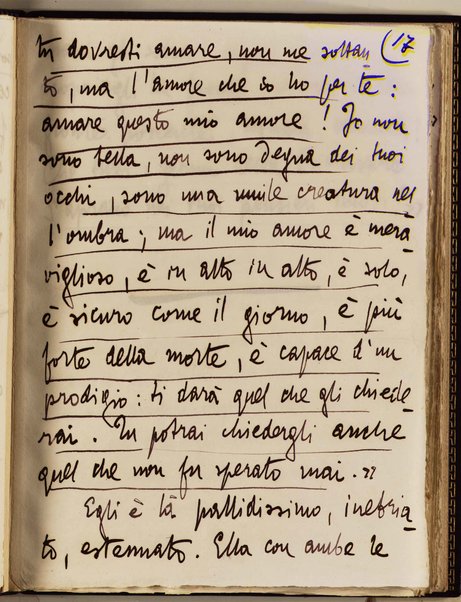 tu dovresti amare, non me soltan (17
to, ma l'amore che io ho per te:
amare questo mio amore! Io non
sono bella, non sono degna dei tuoi
occhi, sono una umile creatura nel
l'ombra; ma il mio amore è mera
viglioso, è in alto in alto, è solo,
è sicuro come il giorno, è più
forte della morte, è capace d'un
prodigio: ti darà quel che gli chiede
rai. Tu potrai chiedergli anche
quel che non fu sperato mai.»
Egli è là pallidissimo, inebria
to, estenuato. Ella con ambe le